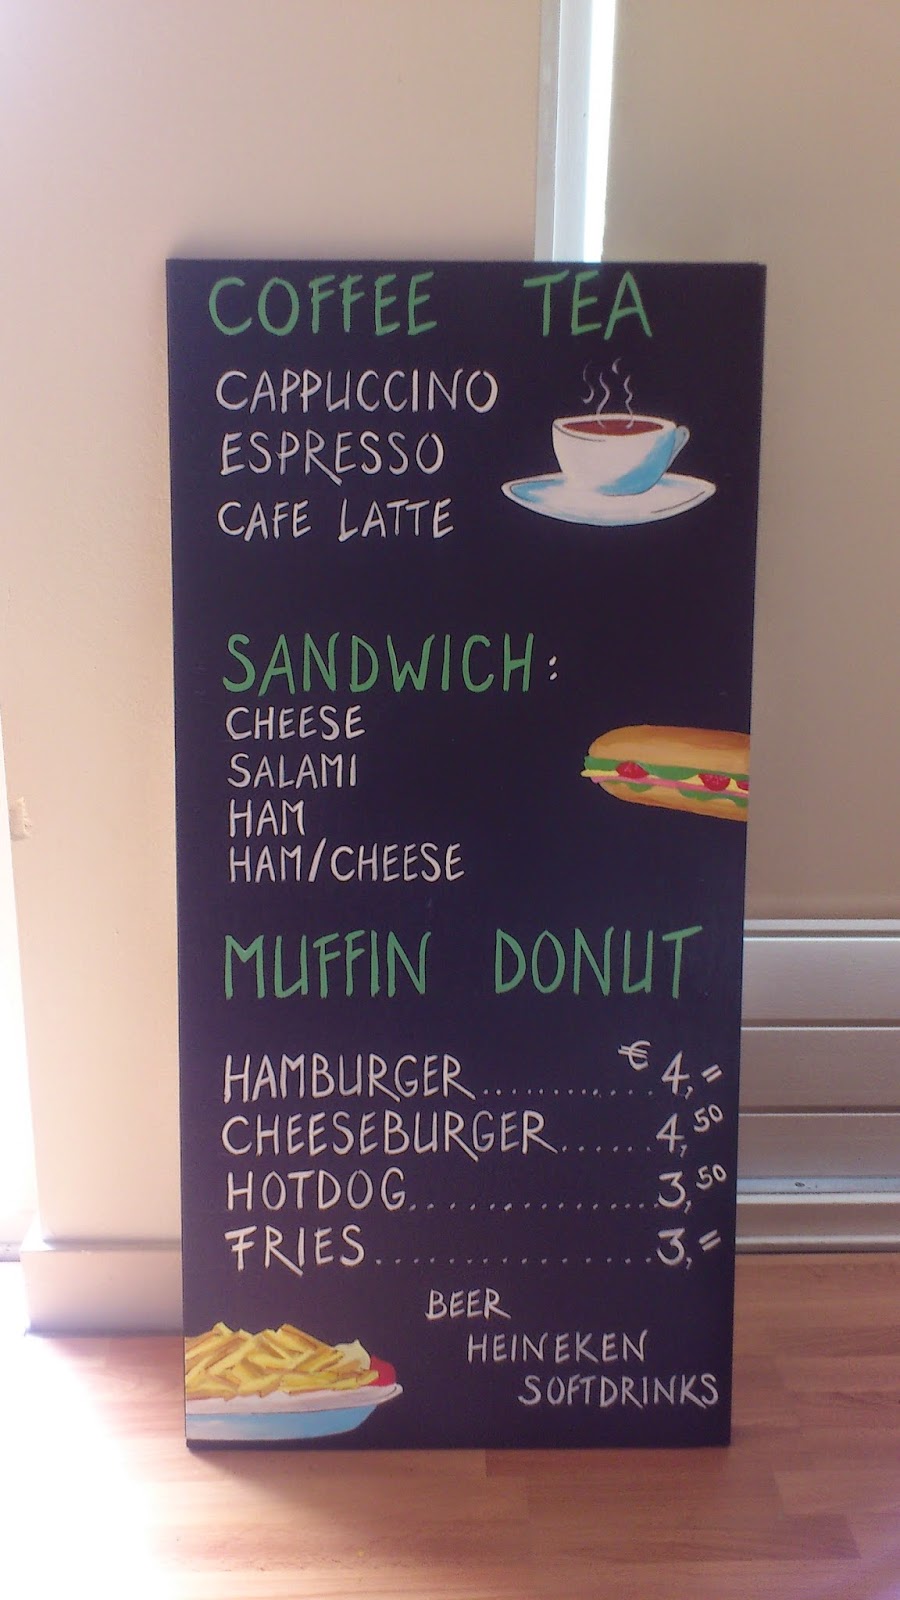 COFFEE TEA
CAPPUCCINO
ESPRESSO
CAFE LATTE
SANDWICH:
CHEESE
SALAMI
HAM
HAM/CHEESE
MUFFIN DONUT
HAMBURGER............€ 4,=
CHEESEBURGER......4,50
HOTDOG................3,50
FRIES.................3,=
BEER
HEINEKEN
SOFTDRINKS